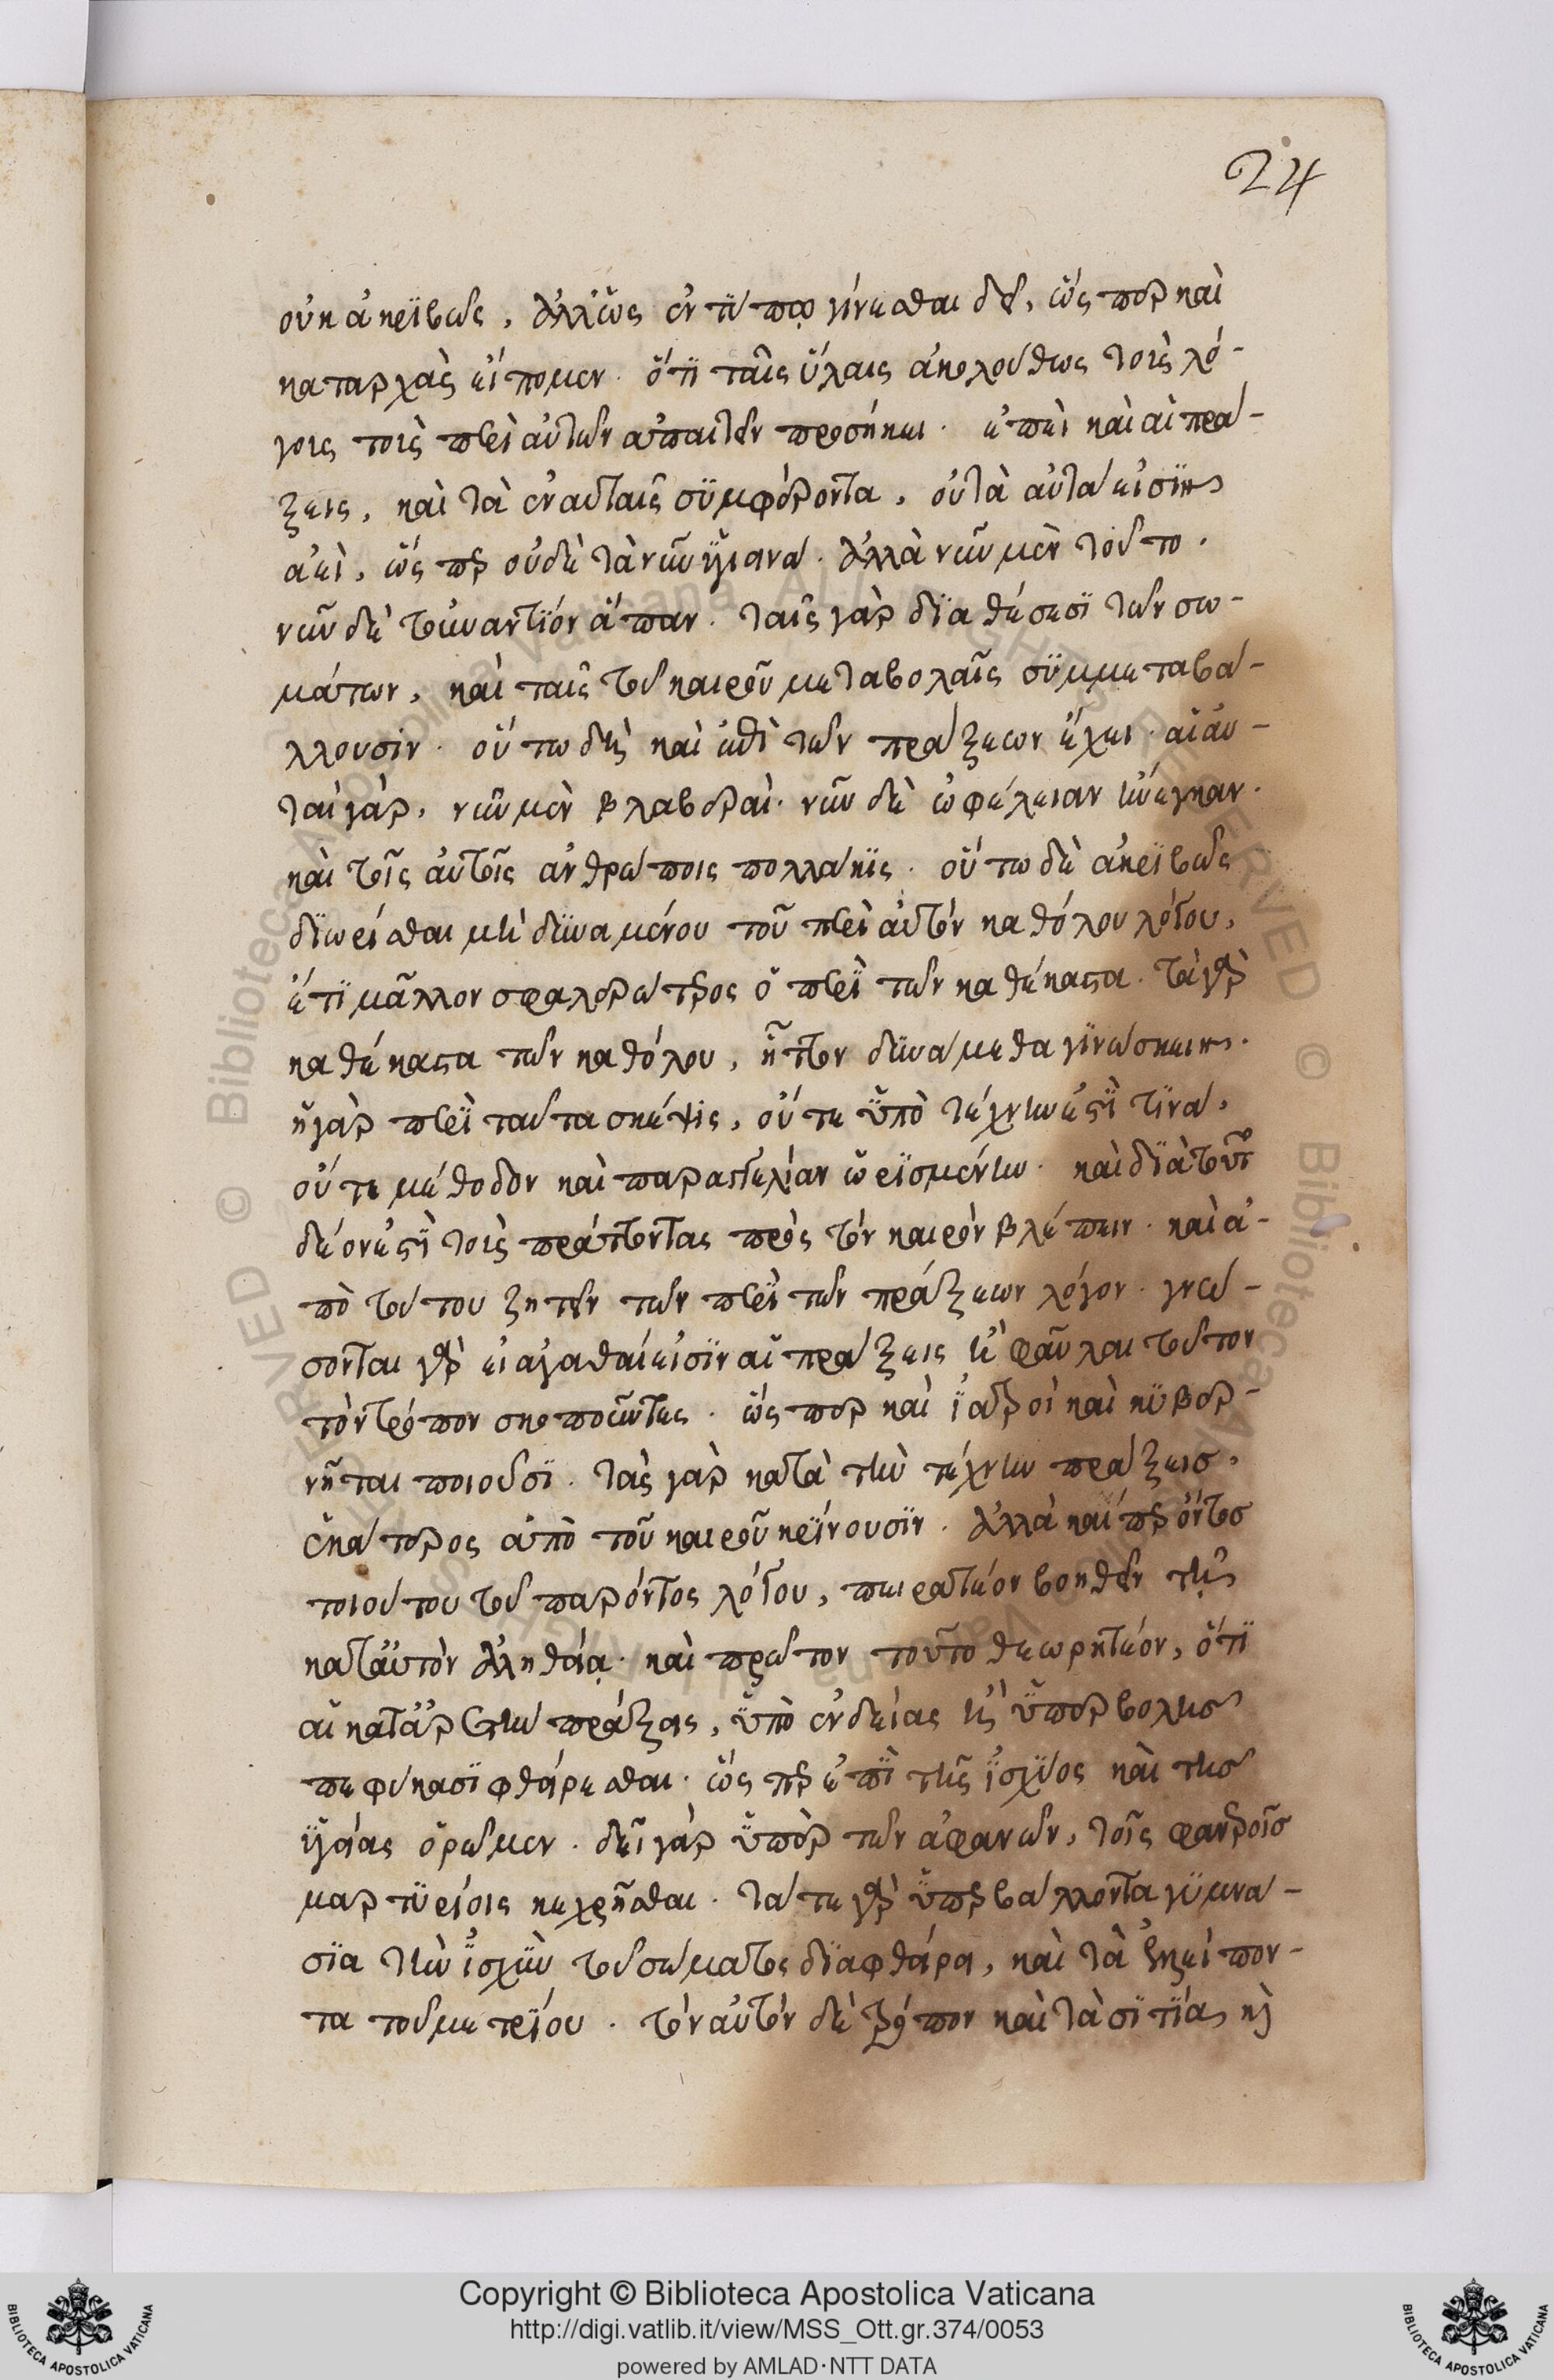 24
οὐκ ἀκριβῶς, ἀλλ' ὡς ἐν τύπῳ γίνεσθαι δεῖ, ὥσπερ καὶ
καταρχὰς εἴπομεν. ὅτι ταῖς ὕλαις ἀκολούθως τοὺς λό-
γους τοὺς περὶ αὐτῶν ἀπαιτεῖν προσήκει. ἐπεὶ καὶ αἱ πρά-
ξεις, καὶ τὰ ἐν αὐταῖς συμφέροντα, οὐ τὰ αὐτά εἰσιν
ἀεὶ, ὥσπερ οὐδὲ τὰ νῦν ὑγιεινά. ἀλλὰ νῦν μὲν τοῦτο.
νῦν δὲ τοὐναντίον ἅπαν. ταῖς γὰρ διαθέσεσι τῶν σω-
μάτων, καὶ ταῖς τοῦ καιροῦ μεταβολαῖς συμμεταβά-
λλουσιν. οὕτω δὴ καὶ ἐπὶ τῶν πράξεων ἔχει. αἱ αὐ-
ταὶ γὰρ, νῦν μὲν βλαβεραὶ. νῦν δὲ ὠφέλειαν ἤνεγκαν.
καὶ τοῖς αὐτοῖς ἀνθρώποις πολλάκις. οὕτω δὲ ἀκριβῶς
διωρίσθαι μὴ δυναμένου τοῦ περὶ αὐτῶν καθόλου λόγου,
ἔτι μᾶλλον σφαλερώτερος ὁ περὶ τῶν καθέκαστα. τὰ γὰρ
καθέκαστα τῶν καθόλου, ἧττον δυνάμεθα γινώσκειν.
ἡ γὰρ περὶ ταῦτα σκέψις, οὔτε ὑπὸ τέχνην ἐστί τινα,
οὔτε μέθοδον καὶ παραγγελίαν ὡρισμένην. καὶ διὰ τοῦτο
δέον ἐστὶ τοὺς πράττοντας πρὸς τὸν καιρὸν βλέπειν. καὶ ἀ-
πὸ τούτου ζητεῖν τὸν περὶ τῶν πράξεων λόγον. γνώ-
σονται γὰρ εἰ ἀγαθαί εἰσιν αἱ πράξεις ἢ φαῦλαι τοῦτον
τὸν τρόπον σκοποῦντες. ὥσπερ καὶ ἰατροὶ καὶ κυβερ-
νῆται ποιοῦσι. τὰς γὰρ κατὰ τὴν τέχνην πράξεις,
ἑκάτερος ἀπὸ τοῦ καιροῦ κρίνουσιν. ἀλλὰ καίπερ ὄντος
τοιούτου τοῦ παρόντος λόγου, πειρατέον βοηθεῖν τῇ
κατ' αὐτὸν ἀληθείᾳ. καὶ πρῶτον τοῦτο θεωρητέον, ὅτι
αἱ κατ' ἀρετὴν πράξεις, ὑπὸ ἐνδείας ἢ ὑπερβολῆς
πεφύκασι φθείρεσθαι. ὥσπερ ἐπὶ τῆς ἰσχύος καὶ τῆς
ὑγείας ὁρῶμεν. δεῖ γὰρ ὑπὲρ τῶν ἀφανῶν, τοῖς φανεροῖς
μαρτυρίοις κεχρῆσθαι. τά τε γὰρ ὑπερβάλλοντα γυμνά-
σια τὴν ἰσχὺν τοῦ σώματος διαφθείρει, καὶ τὰ ἐλλείπον-
τα τοῦ μετρίου. τὸν αὐτὸν δὲ τρόπον καὶ τὰ σιτία, καὶ
Copyright © Biblioteca Apostolica Vaticana
http://digi.vatlib.it/view/MSS_Ott.gr.374/0053
powered by AMLAD·NTT DATA